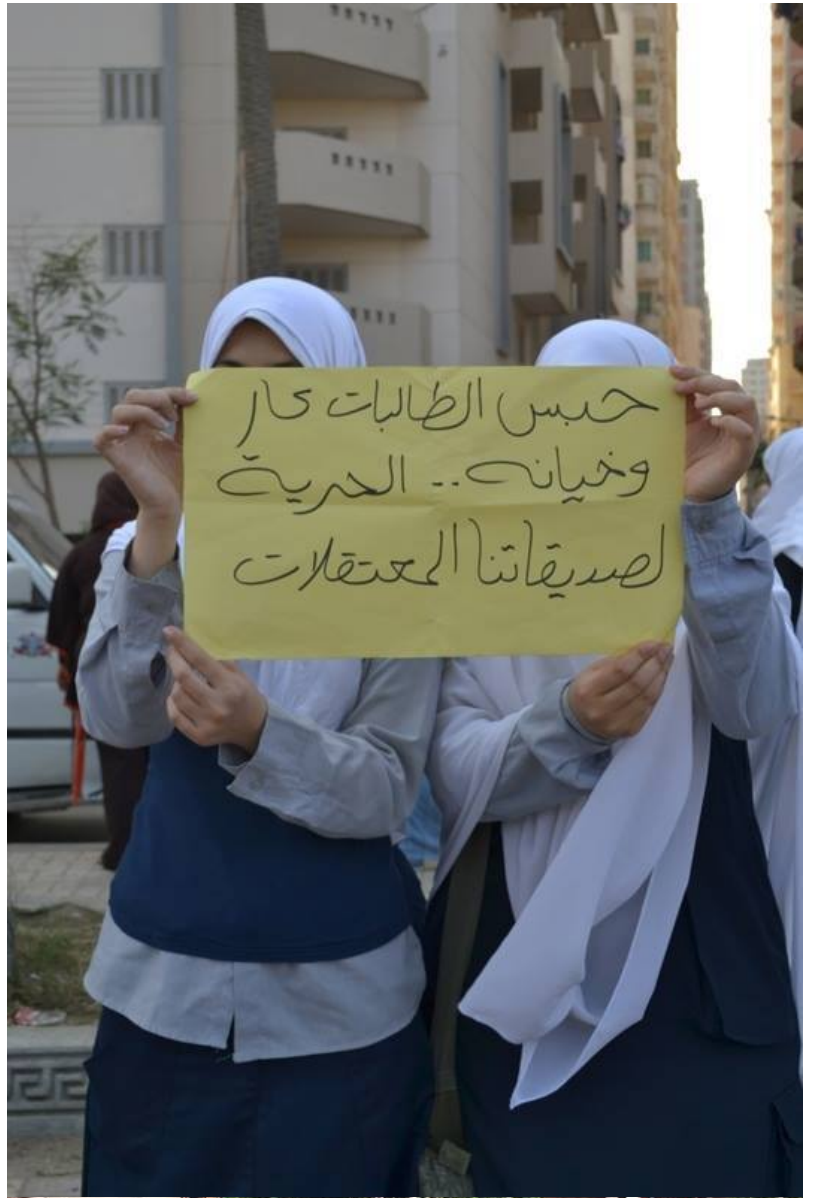 حبس الطالبات عار
وخيانه .. الحرية
لصديقاتنا المعتقلات